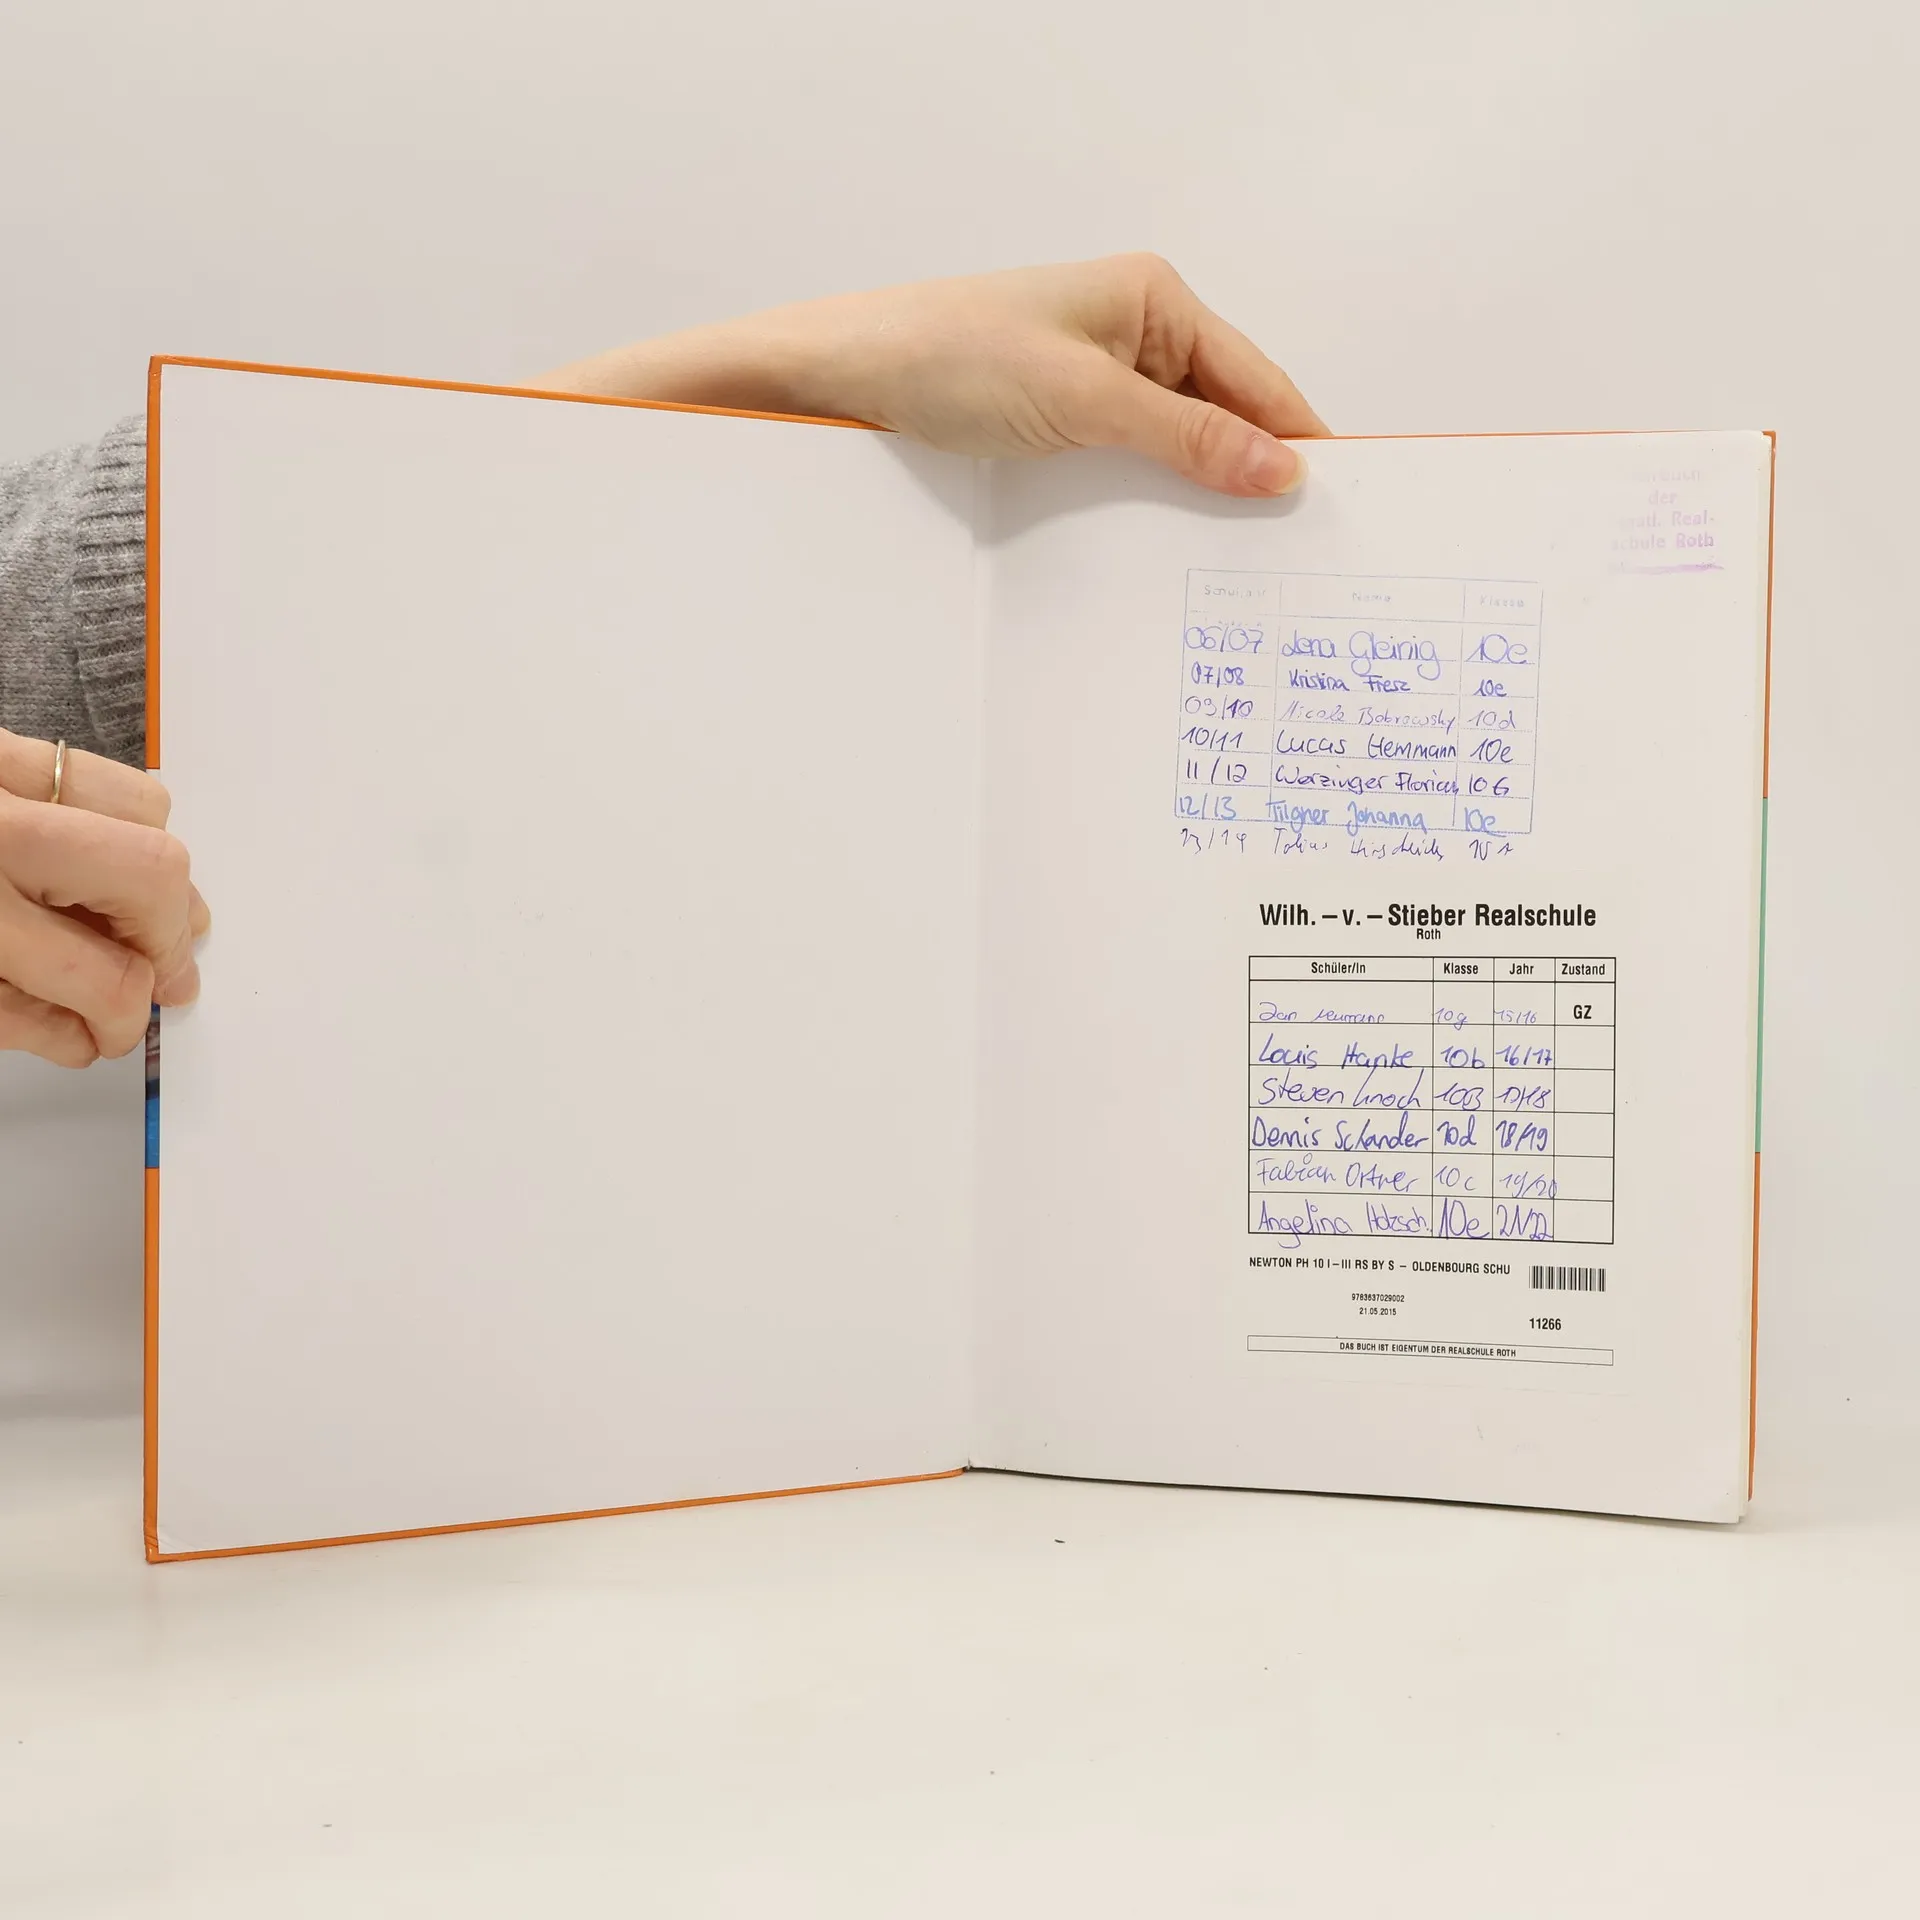 der
Real-
schule Roth
Schuljahr Name Klasse
06/07 Lena Gleinig 10e
07/08 Kristina Fresz 10e
09/10 Nicole Bobrowsky 10d
10/11 Lucas Hemmann 10e
11/12 Werzinger Florian 10G
12/13 Trilgner Johanna 10e
13/14 Tobias
Wilh. – v. – Stieber Realschule
Roth
Schüler/In Klasse Jahr Zustand
Jan Neumann 10g 15/16 GZ
Louis Hanke 10b 16/17
Steven Knoch 10B 17/18
Dennis Schander 10d 18/19
Fabian Ortner 10c 19/20
Angelina Holzsch. 10e 21/22
NEWTON PH 10 I–III RS BY S – OLDENBOURG SCHU
9783637029002
21.05.2015
11266
DAS BUCH IST EIGENTUM DER REALSCHULE ROTH